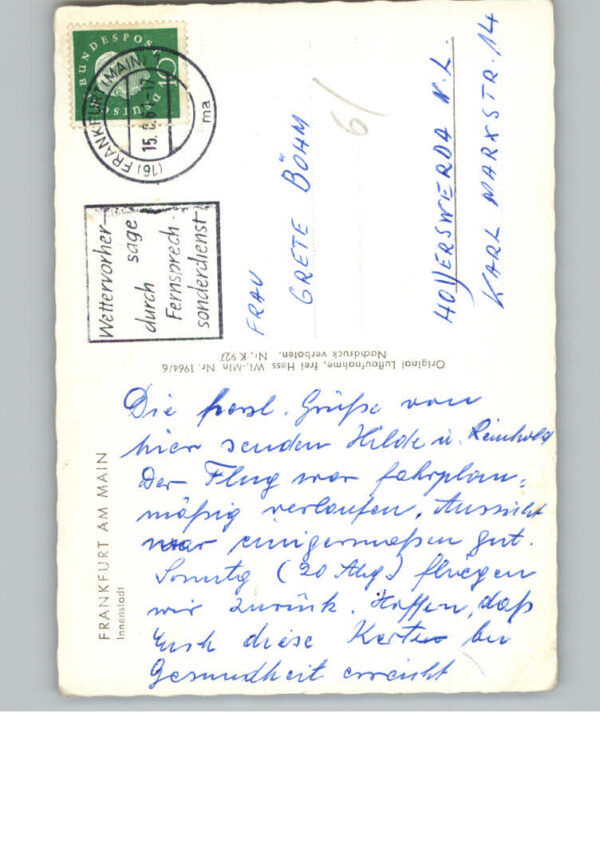 DEUTSCHE BUNDESPOST
10
(16) FRANKFURT (MAIN)
15.8.61-17
ma
Wettervorher-
sage
durch
Fernsprech-
sonderdienst
61
FRAU
GRETE BÖHM
HOYERSWERDA N.L.
KARL MARXSTR. 14
Original Luftaufnahme, frei Hess. Wi.-Min Nr. 1964/6
Nachdruck verboten. Nr. K 927
FRANKFURT AM MAIN
Innenstadt
Die herzl. Grüße von
hier senden Hilde u. Reinhold
Der Flug war fahrplan-
mäßig verlaufen. Aussicht
war einigermaßen gut.
Sonntg (20 Aug.) fliegen
wir zurück. Hoffen, daß
Euch diese Karte bei
Gesundheit erreicht